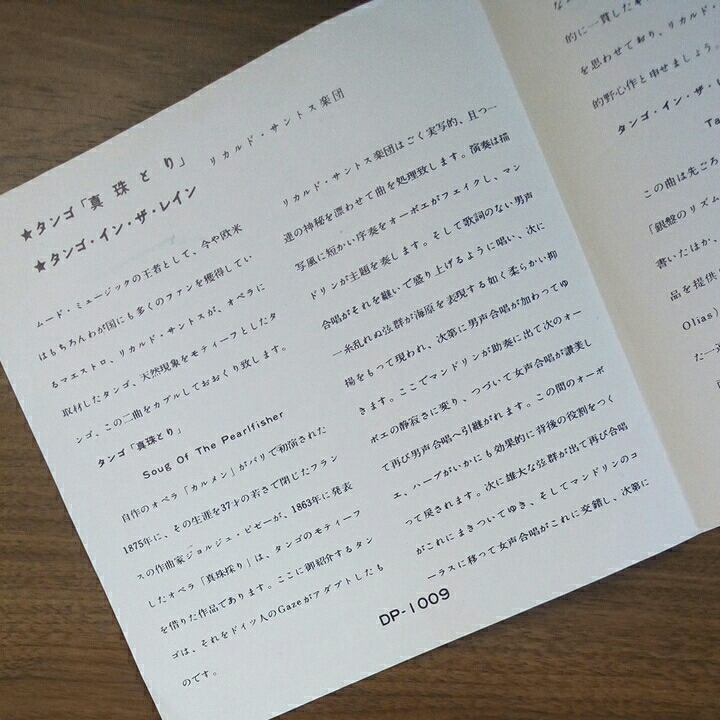 ★タンゴ「真珠とり」
★タンゴ・イン・ザ・レイン
リカルド・サントス楽団
ムード・ミュージックの王者として、今や欧米
はもちろんわが国にも多くのファンを獲得してい
るマエストロ、リカルド・サントスが、オペラに
取材したタンゴ、天然現象をモティーフとしたタ
ンゴ、この二曲をカプルしておおくり致します。
タンゴ「真珠とり」
Soug Of The Pearlfisher
自作のオペラ「カルメン」がパリで初演された
1875年に、その生涯を37才の若さで閉じたフラン
スの作曲家ジョルジュ・ビゼーが、1863年に発表
したオペラ「真珠採り」は、タンゴのモティーフ
を借りた作品であります。ここに御紹介するタン
ゴは、それをドイツ人のGazeがアダプトしたも
のです。
リカルド・サントス楽団はごく実写的、且つ一
連の神秘を漂わせて曲を処理致します。演奏は描
写風に短かい序奏をオーボエがフェイクし、マン
ドリンが主題を奏します。そして歌詞のない男声
合唱がそれを継いで盛り上げるように唱い、次に
一糸乱れぬ弦群が海原を表現する如く柔らかい抑
揚をもって現われ、次第に男声合唱が加わってゆ
きます。ここでマンドリンが助奏に出て次のオー
ボエの静寂さに変り、つづいて女声合唱が讃美し
て再び男声合唱へ引継がれます。この間のオーボ
エ、ハープがいかにも効果的に背後の役割をつく
って戻されます。次に雄大な弦群が出て再び合唱
がこれにまきついてゆき、そしてマンドリンのコ
ーラスに移って女声合唱がこれに交錯し、次第に
DP-1009
的に一貫した
を思わせており、リカルド・
的野心作と申せましょう。
タンゴ・イン・ザ・レ
Ta
この曲は先ごろ
「銀盤のリズム
書いたほか、
品を提供
Olias)
た一